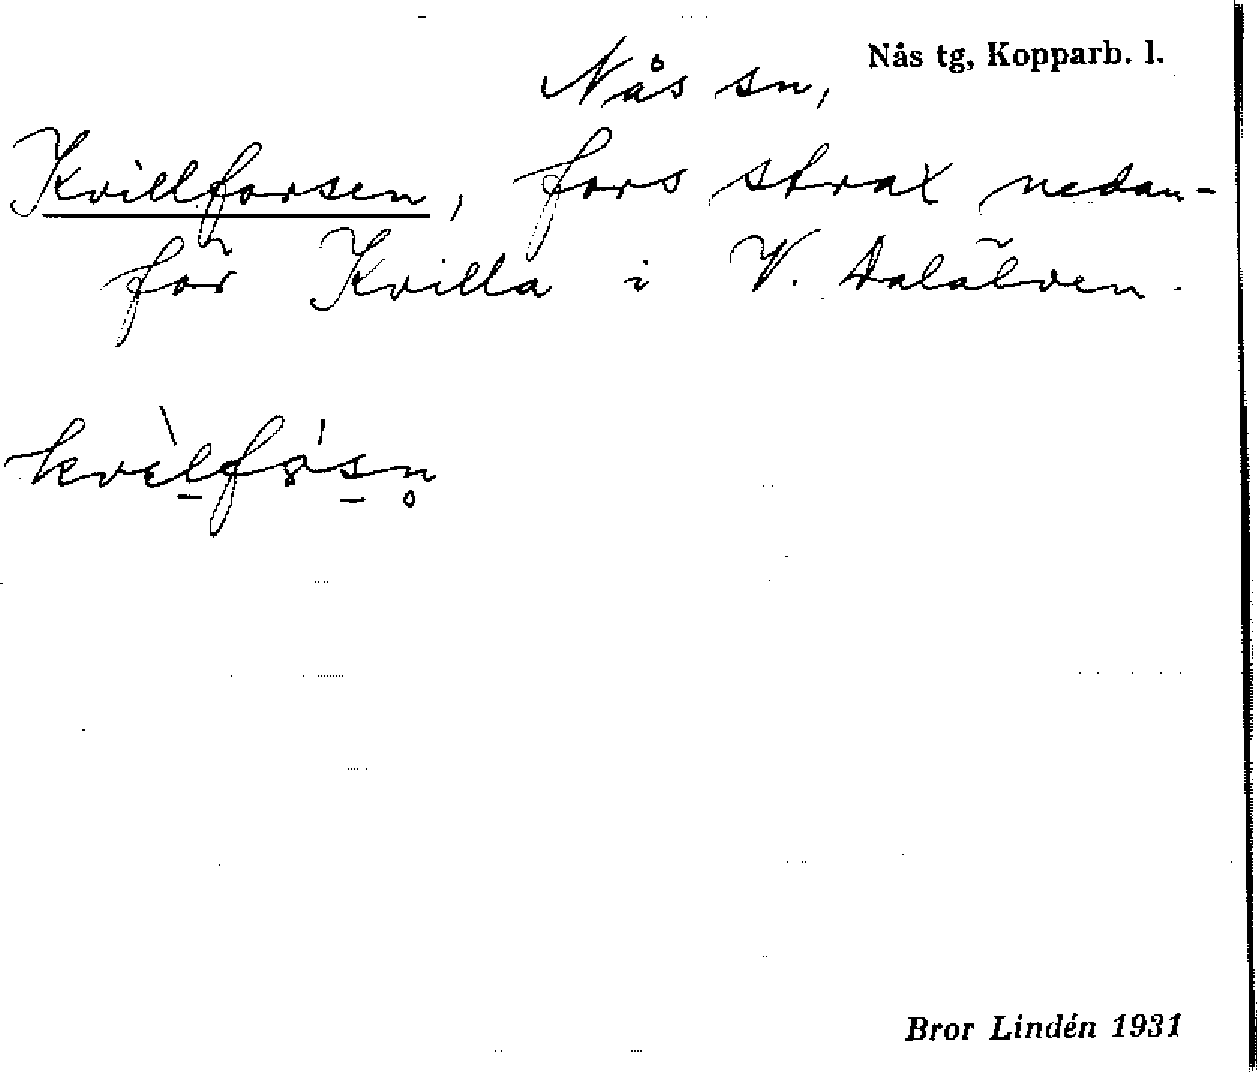 Nås tg, Kopparb. l.
Nås sn,
Kvillforsen, fors strax nedan-
för Kvilla i V. Dalälven.
Bror Lindén 1931